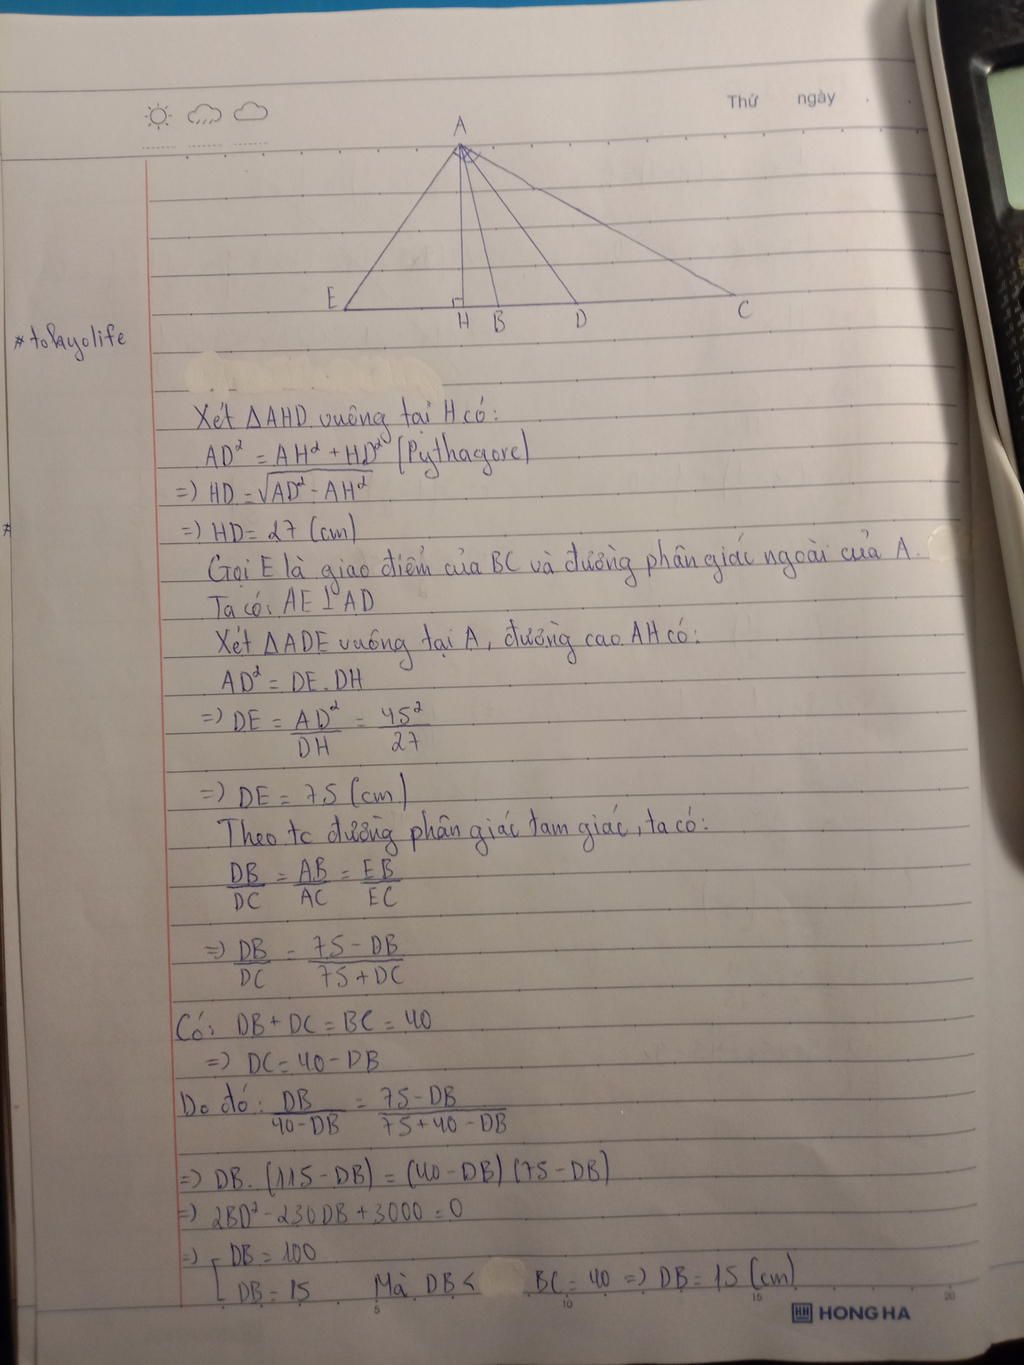 Thứ ngày
A
E H B D C
*tokyolife
Xét ΔAHD vuông tại H có:
AD² = AH² + HD² (Pythagore)
=) HD = √AD² - AH²
=) HD = 27 (cm)
Gọi E là giao điểm của BC và đường phân giác ngoài của A.
Ta có: AE ⊥ AD
Xét ΔADE vuông tại A, đường cao AH có:
AD² = DE. DH
=) DE = AD²/DH = 45²/27
=) DE = 75 (cm)
Theo tc đường phân giác tam giác, ta có:
DB/DC = AB/AC = EB/EC
=) DB/DC = 75 - DB/75 + DC
Có: DB + DC = BC = 40
=) DC = 40 - DB
Do đó: DB/40 - DB = 75 - DB/75 + 40 - DB
=) DB. (115 - DB) = (40 - DB) (75 - DB)
=) 2BD² - 230DB + 3000 = 0
=) [ DB = 100
DB = 15 Mà DB < BC = 40 =) DB = 15 (cm)
5 10 15 20
HH HONG HA